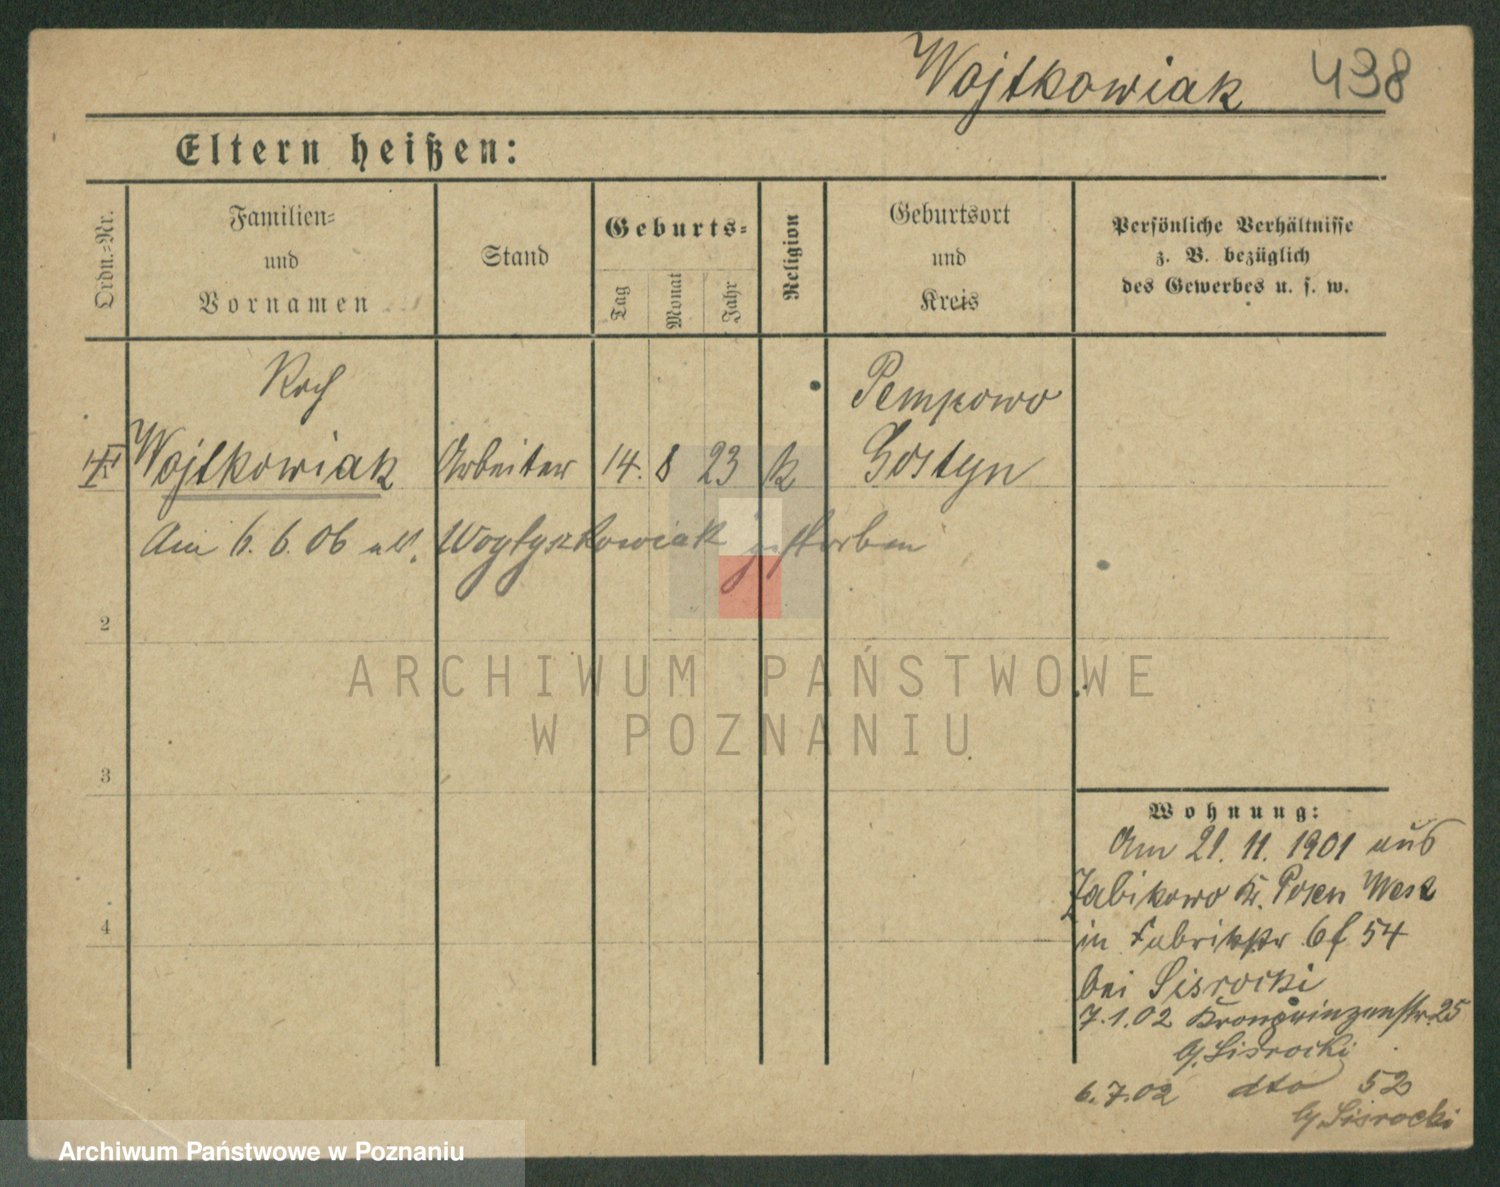 Wojtkowiak 438
Eltern heißen:
Ordn.-Nr.
Familien-
und
Vornamen
Stand
Geburts-
Tag
Monat
Jahr
Religion
Geburtsort
und
Kreis
Persönliche Verhältnisse
z. B. bezüglich
des Gewerbes u. s. w.
Roch
Wojtkowiak Arbeiter 14. 8 23 k
Pempowo
Gostyn
Am 6. 6. 06 als Woytyszkowiak gestorben
2
3
4
ARCHIWUM PAŃSTWOWE
W POZNANIU
Wohnung:
Am 21. 11. 1901 aus
Zabikowo Kr. Posen West
in Fabrikstr 6f 54
bei Sisrocki
7.1.02 Kronprinzenstr. 25
b/ Sisrocki
6.7.02 dto 52
b/ Sisrocki
Archiwum Państwowe w Poznaniu